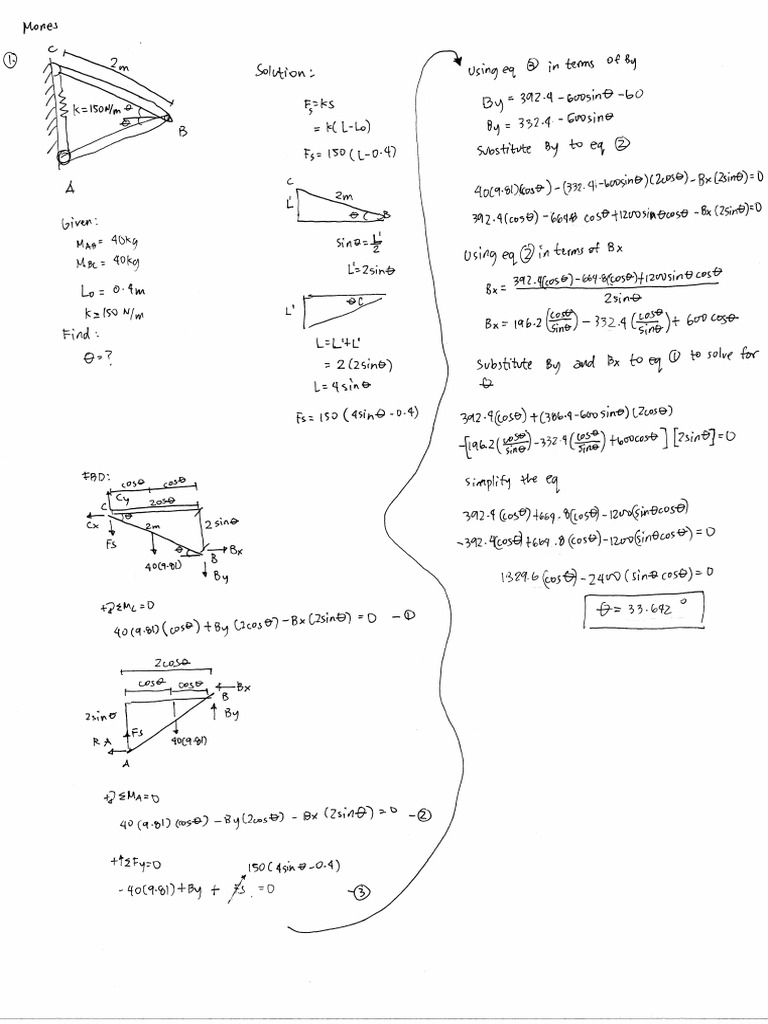 Mones
①
C
2m
K=150N/m
θ
θ
B
A
Given:
M_AB = 40kg
M_BC = 40kg
L₀ = 0.4m
K=150 N/m
Find:
θ=?
Solution:
F_s=KS
= K(L-L₀)
F_s = 150 (L-0.4)
C
L'
2m
θ
B
sinθ = L'/2
L'=2sinθ
L'
θ
L=L'+L'
= 2(2sinθ)
L= 4sinθ
Fs= 150 (4sinθ-0.4)
FBD:
cosθ cosθ
Cy
2cosθ
C
θ
Cx
2m
2sinθ
Fs
θ
Bx
B
40(9.81)
By
+ΣM_C=0
40(9.81)(cosθ)+By(2cosθ)-Bx(2sinθ)=0 -①
2cosθ
cosθ cosθ
Bx
B
2sinθ
By
Fs
RA
40(9.81)
A
+ΣM_A=0
40(9.81)(cosθ)-By(2cosθ)-Bx(2sinθ)=0 -②
+↑ΣFy=0
150(4sinθ-0.4)
-40(9.81)+By + Fs =0 -③
Using eq ③ in terms of By
By = 392.4-600sinθ-60
By = 332.4-600sinθ
Substitute By to eq ②
40(9.81)(cosθ)-(332.4-600sinθ)(2cosθ)-Bx(2sinθ)=0
392.4(cosθ)-664.8 cosθ+1200sinθcosθ-Bx(2sinθ)=0
Using eq ② in terms of Bx
Bx = 392.4(cosθ)-664.8(cosθ)+1200sinθcosθ
2sinθ
Bx = 196.2(cosθ/sinθ)-332.4(cosθ/sinθ)+600cosθ
Substitute By and Bx to eq ① to solve for
θ
392.4(cosθ)+(386.4-600sinθ)(2cosθ)
-[196.2(cosθ/sinθ)-332.4(cosθ/sinθ)+600cosθ][2sinθ]=0
simplify the eq
392.4(cosθ)+664.8(cosθ)-1200(sinθcosθ)
-392.4(cosθ)+664.8(cosθ)-1200(sinθcosθ)=0
1329.6(cosθ)-2400(sinθcosθ)=0
θ= 33.642°